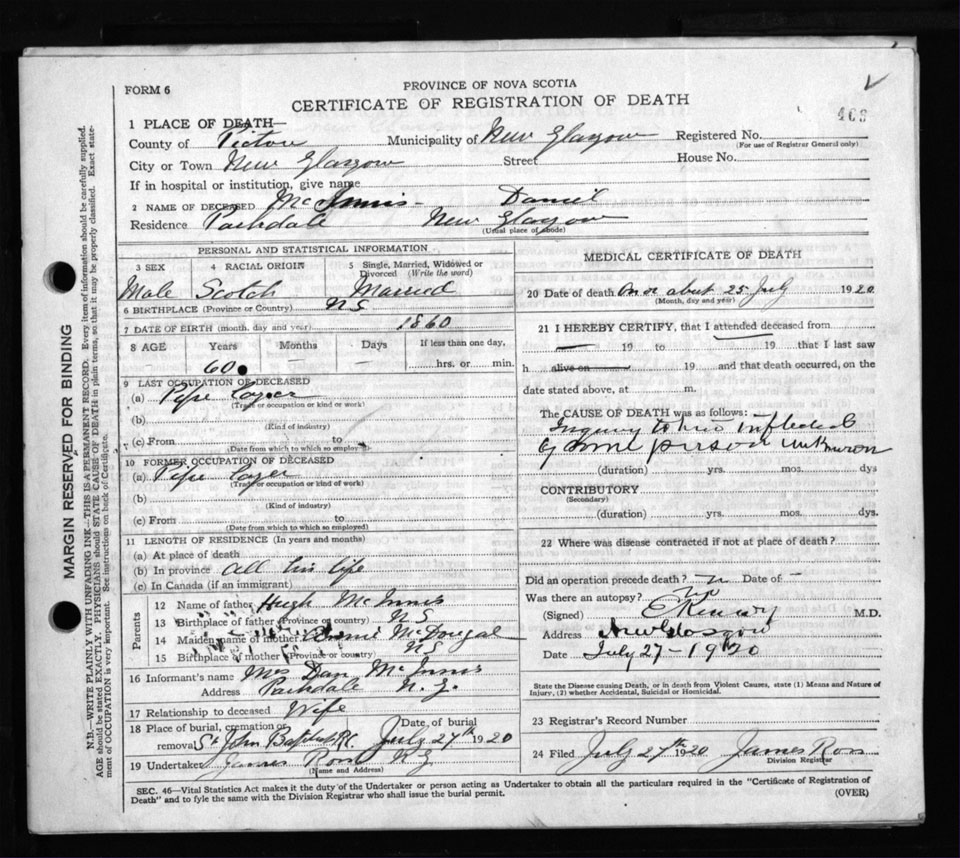 FORM 6
PROVINCE OF NOVA SCOTIA
CERTIFICATE OF REGISTRATION OF DEATH
1 PLACE OF DEATH—
County of Pictou Municipality of New Glasgow Registered No.
(For use of Registrar General only)
City or Town New Glasgow Street House No.
If in hospital or institution, give name
2 NAME OF DECEASED McInnis - Daniel
Residence Parkdale New Glasgow
(Usual place of abode)
PERSONAL AND STATISTICAL INFORMATION
3 SEX 4 RACIAL ORIGIN 5 Single, Married, Widowed or Divorced (Write the word)
Male Scotch Married
6 BIRTHPLACE (Province or Country) N S
7 DATE OF BIRTH (month, day and year) 1860
8 AGE Years Months Days If less than one day,
60 — hrs. or min.
9 LAST OCCUPATION OF DECEASED
(a) Pipe Layer
(Trade or occupation or kind of work)
(b)
(Kind of industry)
(c) From to
(Date from which to which so employed)
10 FORMER OCCUPATION OF DECEASED
(a) Pipe Layer
(Trade or occupation or kind of work)
(b)
(Kind of industry)
(c) From to
(Date from which to which so employed)
11 LENGTH OF RESIDENCE (In years and months)
(a) At place of death
(b) In province all his life
(c) In Canada (if an immigrant)
Parents
12 Name of father Hugh McInnis
13 Birthplace of father (Province or country) N S
14 Maiden name of mother Annie McDougal
15 Birthplace of mother (Province or country) N S
16 Informant's name Mrs Dan McInnis
Address Parkdale N. G.
17 Relationship to deceased Wife
18 Place of burial, cremation or removal St John Baptist R.C. Date of burial July 27th 1920
19 Undertaker James Ross N G
(Name and Address)
MEDICAL CERTIFICATE OF DEATH
20 Date of death On or about 25 July 1920
(Month, day and year)
21 I HEREBY CERTIFY, that I attended deceased from
— 19 to — 19 that I last saw
h alive on 19 and that death occurred, on the
date stated above, at m.
The CAUSE OF DEATH was as follows:
of some person unknown
(duration) yrs. mos. dys
CONTRIBUTORY
(Secondary)
(duration) yrs. mos. dys.
22 Where was disease contracted if not at place of death?
Did an operation precede death? Date of —
Was there an autopsy? no
(Signed) M.D.
Address New Glasgow
Date July 27 - 1920
State the Disease causing Death, or in death from Violent Causes, state (1) Means and Nature of
Injury, (2) whether Accidental, Suicidal or Homicidal.
23 Registrar's Record Number
24 Filed July 27th 1920 James Ross
Division Registrar
SEC. 46—Vital Statistics Act makes it the duty of the Undertaker or person acting as Undertaker to obtain all the particulars required in the "Certificate of Registration of
Death" and to fyle the same with the Division Registrar who shall issue the burial permit. (OVER)
MARGIN RESERVED FOR BINDING
N.B.—WRITE PLAINLY WITH UNFADING INK—THIS IS A PERMANENT RECORD. Every item of information should be carefully supplied.
AGE should be stated EXACTLY. PHYSICIANS should STATE CAUSE OF DEATH in plain terms, so that it may be properly classified. Exact state-
ment of OCCUPATION is very important. See instructions on back of Certificate.